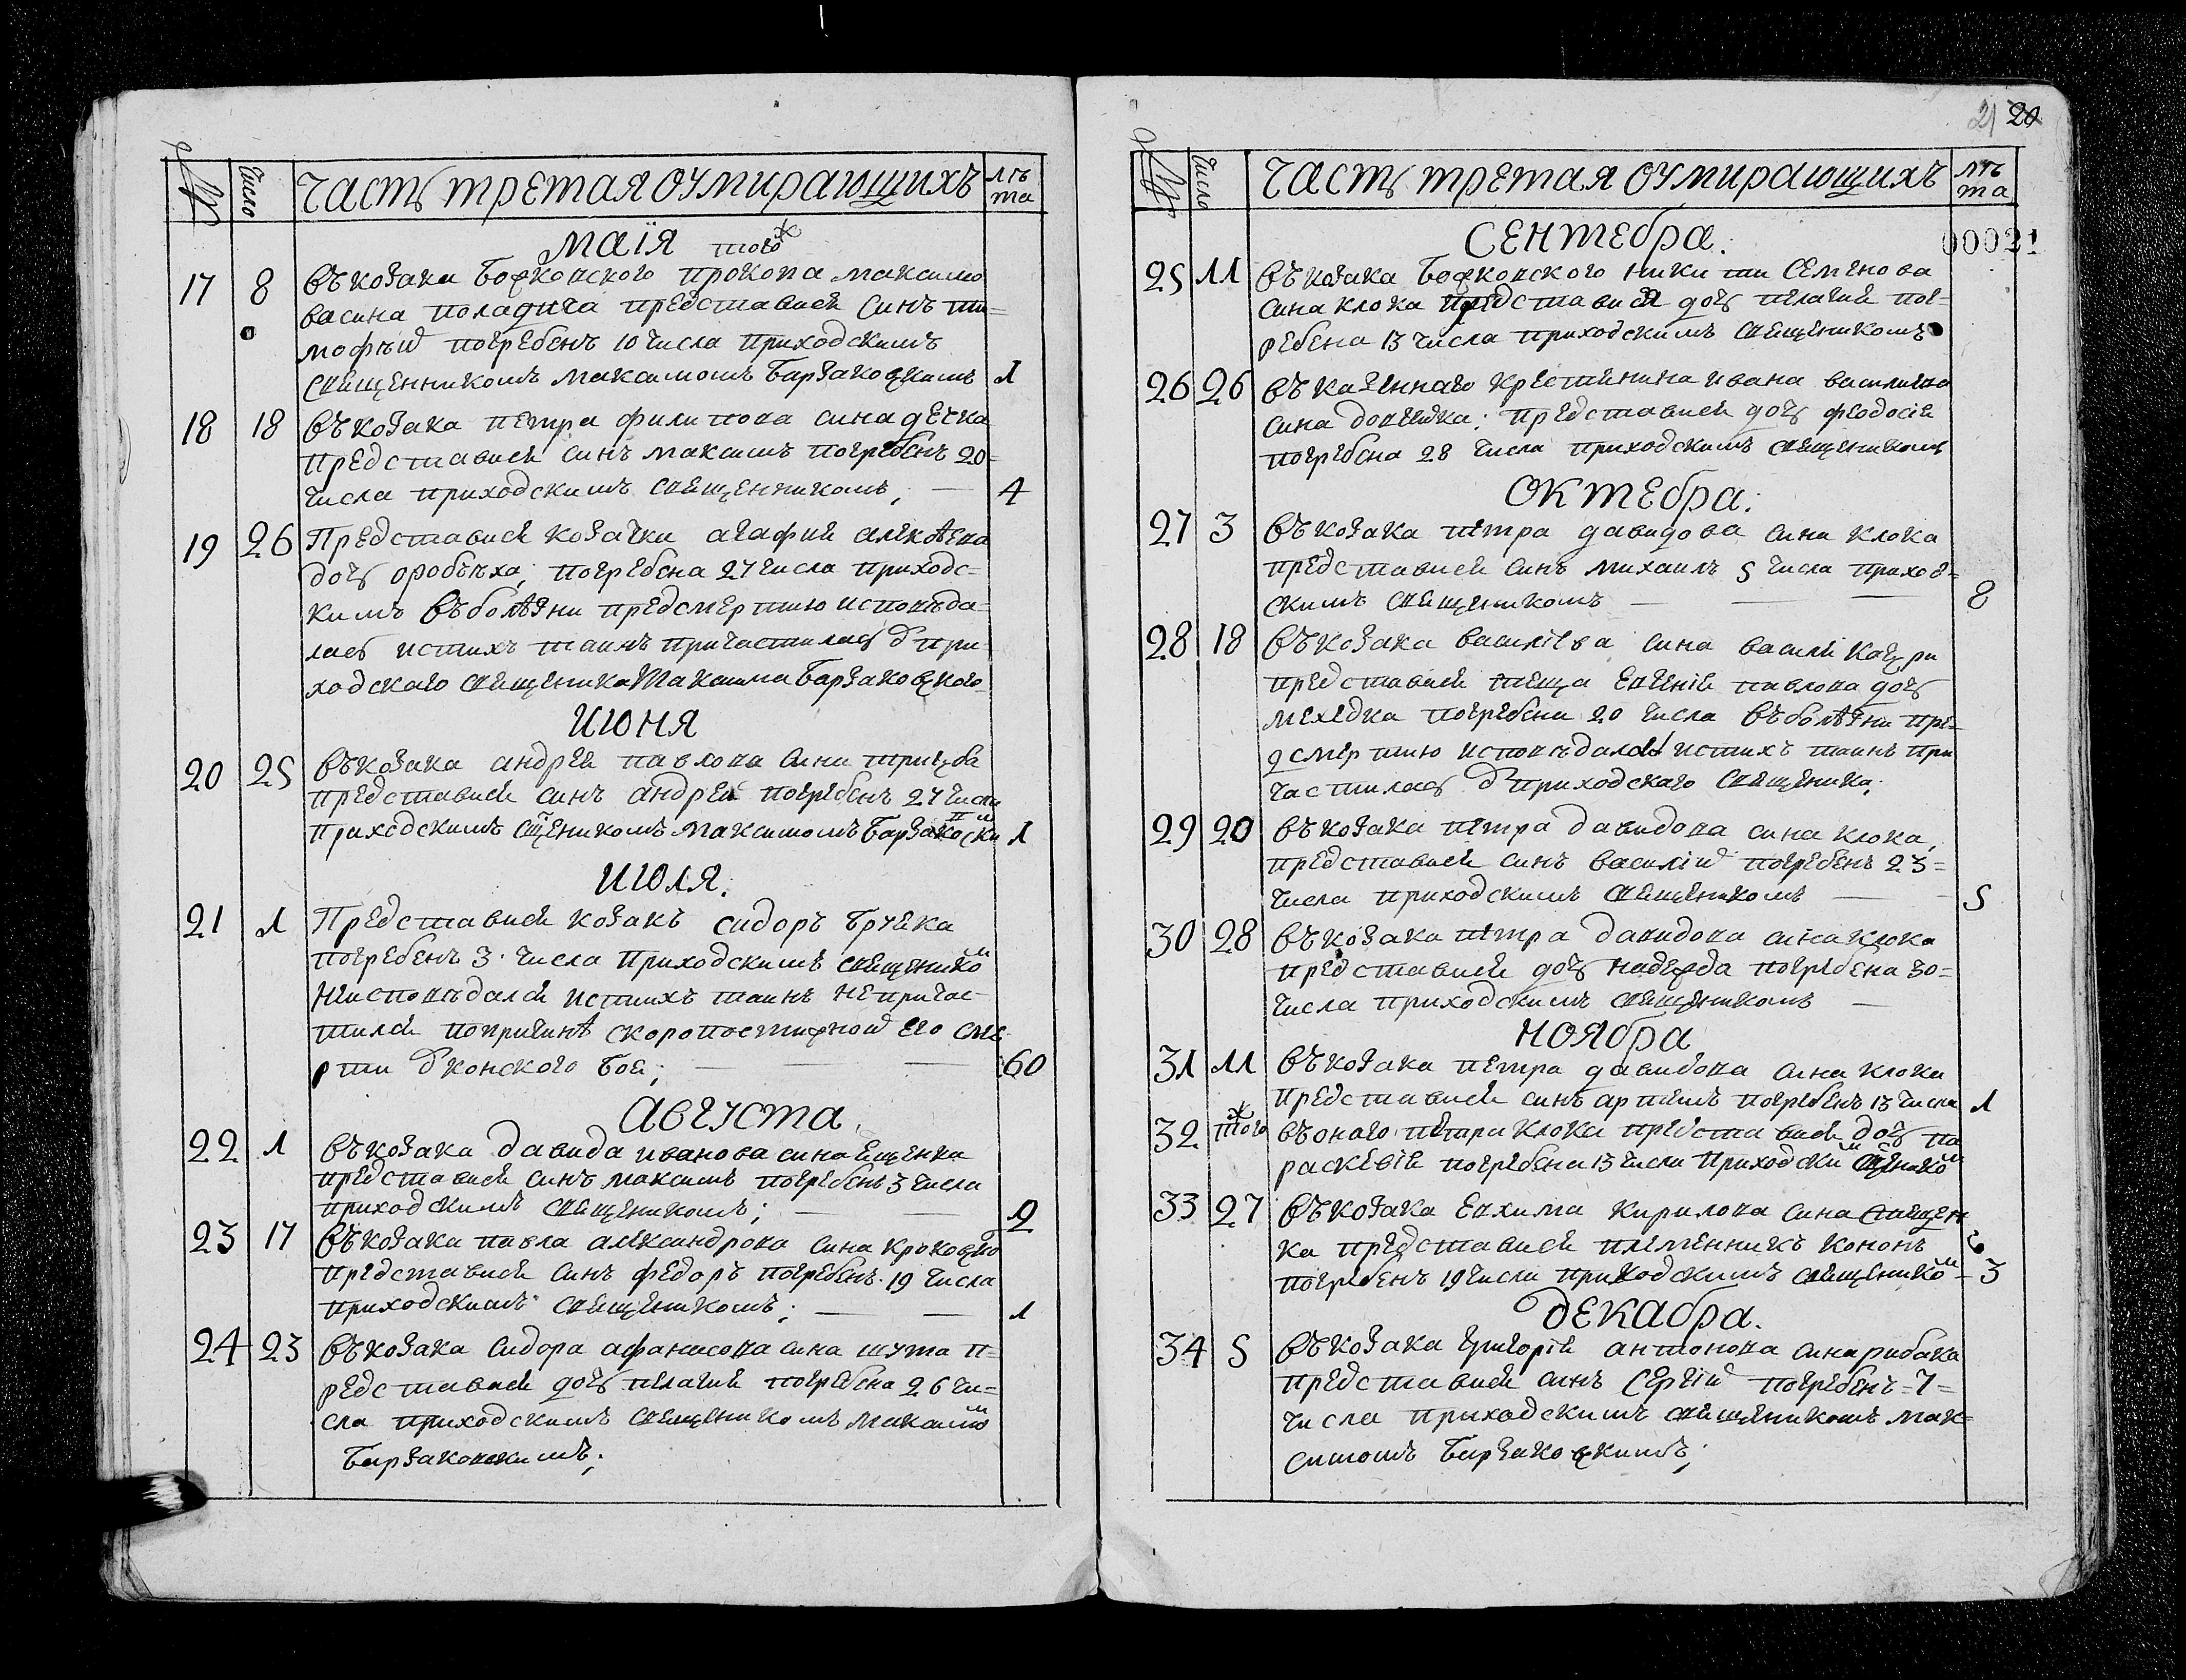 № Число Часть третая оумирающихъ лѣта
Маія того ж
17 8 въ козака Божковского прокопа максимо
васина поладича представися синъ ти-
мофѣй погребенъ 10 числа приходскимъ
священникомъ максимомъ Барзаковскимъ 1
18 18 въ козака петра филипова сина дечка
представися синъ максимъ погребенъ 20=
числа приходскимъ священникомъ; — 4
19 26 Представися козачка агафия алексѣева
дочь погребена 27 числа приходс=
кимъ въ болѣзни предсмертию исповѣда-
лась истихъ таинъ причастилась ѿ при-
ходскаго священика Максима Барзаковского
Июня
20 25 въ козака андрея павлова сина
представися синъ андрей погребенъ 27 числа
приходскимъ сщеникомъ максимомъ Барзаковски м 1
Июля:
21 1 Представися козакъ сидоръ
погребенъ 3 числа приходскимъ священико м
неисповѣдался истихъ таинъ непричас-
тился попричинѣ скоропостижной его сме-
рти ѿ конского боя; — — 60
Августа.
22 1 въ козака давида иванова сина Ещенка
представися синъ максимъ погребенъ 3 числа
приходскимъ священикомъ; — — 2
23 17 въ козака павла александрова сина
представися синъ федоръ погребенъ 19 числа
приходскимъ священикомъ; — — 1
24 23 въ козака сидора афанасова сина шута п=
редставися дочь пелагия погребена 26 чи=
сла приходскимъ священикомъ максимо м
Барзаковскимъ;
21 20
№ Число Часть третая оумирающихъ лѣта
Сентебра:
00021
25 11 въ козака Божковского никити Семенова
сина клока представися дочь пелагия пог=
ребена 13 числа приходскимъ священикомъ
26 26 въ казеннаго крестянина ивана василиева
сина представися дочь феодосия
погребена 28 числа приходскимъ священикомъ
Октебра:
27 3 въ козака петра давидова сина клока
представися синъ михаилъ 5 числа приход-
скимъ священикомъ — — — 8
28 18 въ козака василіева сина василя
представися теща Евгения павлова дочь
мехедка погребена 20 числа въ болѣзни пре-
дсмертию исповѣдалась истихъ таинъ при
частилась ѿ приходскаго священика;
29 20 въ козака петра давидова сина клока,
представися синъ василій погребенъ 23=
числа приходскимъ священикомъ — 5
30 28 въ козака петра давидова сина клока
представися дочь надежда погребена 30=
числа приходскимъ священикомъ —
Ноябра
31 11 въ козака петра давидова сина клока
представися синъ артемъ погребенъ 13 числа 1
32 того ж въ оного петра клока представися дочь па
раскевія погребена 13 числа приходски м сщенико м
33 27 въ козака Евхима кирилова сина
ка представися племенникъ кононъ
погребенъ 19 числа приходскимъ священико м — 3
Декабра.
34 5 въ козака григорія антонова сина рибака
представися синъ Сергій погребенъ =7=
числа приходскимъ священикомъ мак=
симомъ Барзаковскимъ;